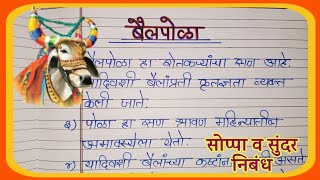 बैलपोळा
बैलपोळा हा शेतकऱ्यांचा सण आहे.
यादिवशी बैलांप्रती कृतज्ञता व्यक्त
केली जाते.
३) पोळा हा सण श्रावण महिन्यातील
अमावस्येला येतो.
४) यादिवशी बैलांच्या कष्टांन
सोप्पा व सुंदर
निबंध